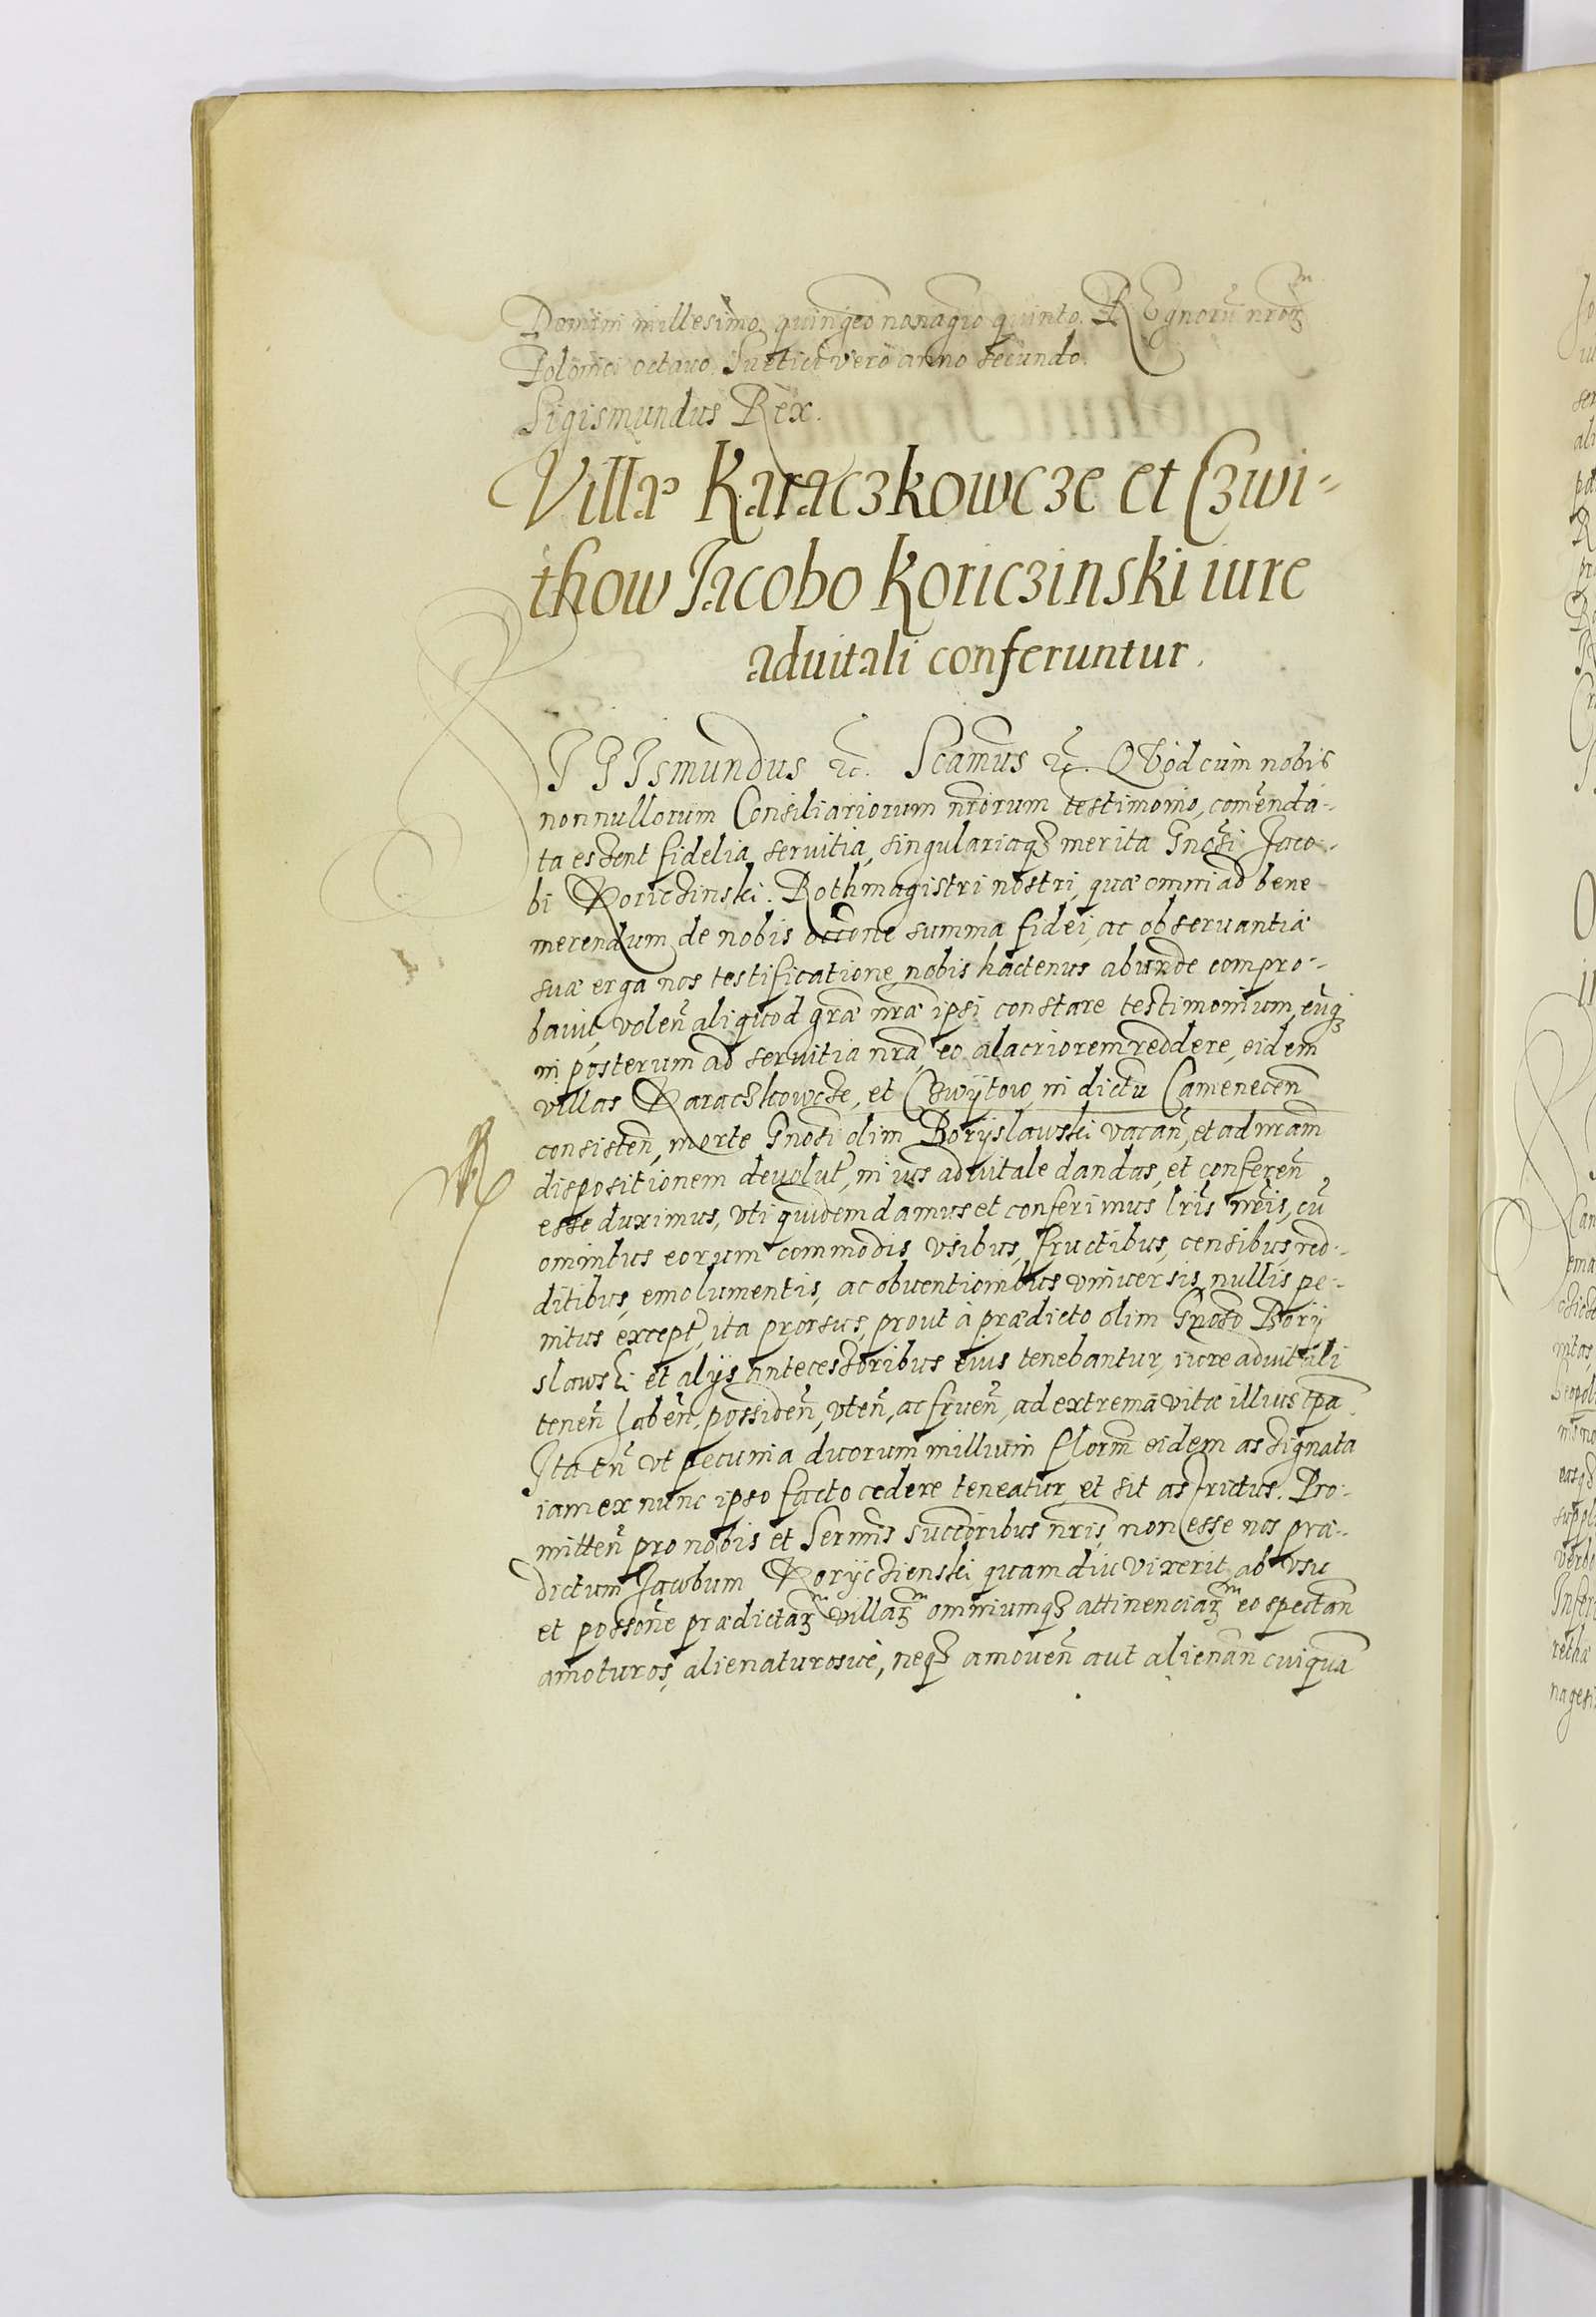 Domini millesimo quingẽo nonagĩo quinto. REgnorũ nrõꝝ
Poloniæ octauo Suetiæ vero anno secundo.
Sigismundus Rex.
Villæ Karaczkowcze et Czwi-
thow Jacobo Koriczinski iure
aduitali conferuntur.
SIGIsmundus ꝛc. Scamus ꝛc. QVod cùm nobis
nonnullorum Consiliariorum nr̃orum testimonio, com̃enda-
ta essent fidelia seruitia, singulariaqꝫ merita Gnõsi Jaco-
bi Koriczinski Rothmagistri nostri, quæ omni ad bene
merendum de nobis occõne summa fidei, ac obseruantiæ
suæ erga nos testificatione nobis hactenus abunde compro-
bauit, volen̄ aliquod grã̃e nr̃æ ipsi constare testimonium, eũqꝫ
in posterum ad seruitia nr̃a eo alacriorem reddere, eidem
villas Karaczkowcze, et Czwÿtow, in dictu Camenecen̄
consisten̄, morte Gnõsi olim Borÿslawski vacan̄, et ad nr̃am
dispositionem deuolut̃, in ius aduitale dandas, et conferen̄
esse duximus, vti quidem damus et conferimus lr̃is nr̃is, cũ
omnibus eorum commodis vsibus, fructibus, censibus red-
ditibus, emolumentis, ac obuentionibus vniuersis, nullis pe-
nitus except̃, ita prorsus, prout à prædicto olim Gnõso Borÿ
slawski et alÿs antecessoribus eius tenebantur, iure aduitali
tenen̄ haben̄, possiden̄, vten̄, ac fruen̄, ad extrema vitæ illius tp̃a.
Ita tn̄ vt pecunia duorum millium flor̃m eidem assignata
iam ex nunc ipso facto cedere teneatur, et sit astrictus. Pro-
mitten̄ pro nobis et Serm̃is succõribus nr̃is, non esse nos præ-
dictum Jacobum Korÿczienski quam diu vixerit, ab vsu
et possõne prædictaꝝ villaꝝ omniumqꝫ attinenciaꝝ eo spectan̄
amoturos, alienaturosuè, neqꝫ amouen̄ aut alienan̄ cuiquã